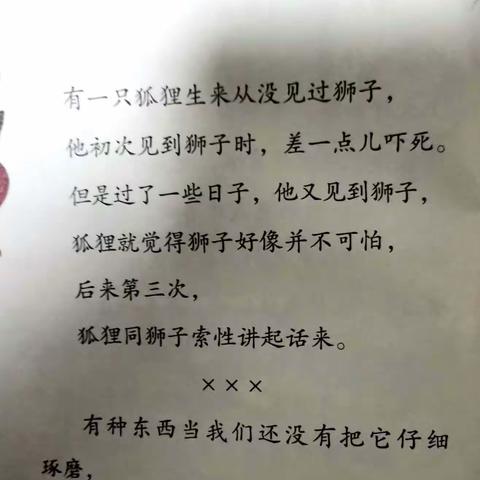 有一只狐狸生来从没见过狮子，
他初次见到狮子时，差一点儿吓死。
但是过了一些日子，他又见到狮子，
狐狸就觉得狮子好像并不可怕，
后来第三次，
狐狸同狮子索性讲起话来。
×××
有种东西当我们还没有把它仔细
琢磨，